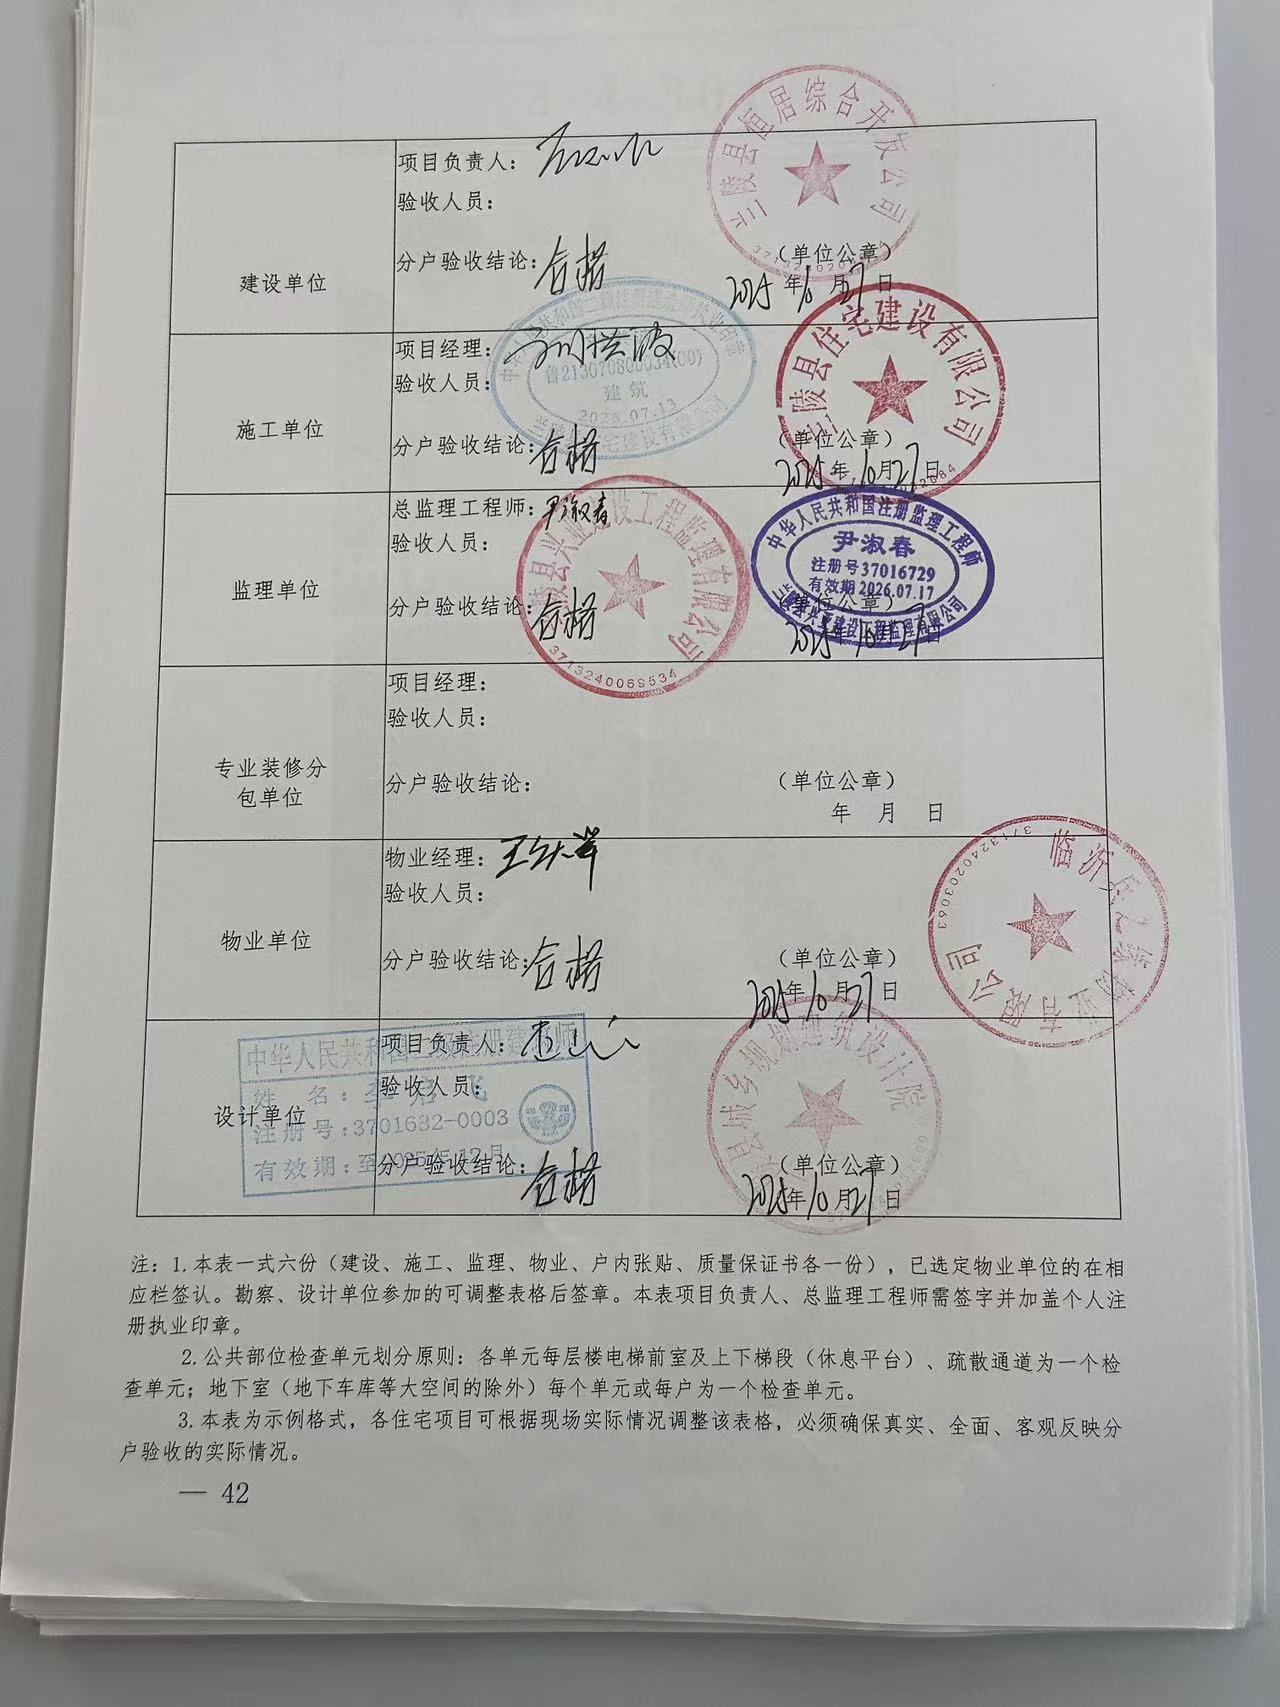 建设单位
项目负责人：
验收人员：
分户验收结论：合格
（单位公章）
2025年10月27日
兰陵县恒居综合开发公司
施工单位
项目经理：
验收人员：
分户验收结论：合格
（单位公章）
2025年10月27日
鲁213070800034(00)
建筑
2026.07.13
兰陵县住宅建设有限公司
监理单位
总监理工程师：尹淑春
验收人员：
分户验收结论：合格
（单位公章）
2025年10月27日
兰陵县兴业建设工程监理有限公司
3713240069534
中华人民共和国注册监理工程师
尹淑春
注册号37016729
有效期2026.07.17
兰陵县兴业建设工程监理有限公司
专业装修分
包单位
项目经理：
验收人员：
分户验收结论：
（单位公章）
年 月 日
物业单位
物业经理：
验收人员：
分户验收结论：合格
（单位公章）
2025年10月27日
3713240203063
设计单位
项目负责人：
验收人员：
分户验收结论：合格
（单位公章）
2025年10月27日
中华人民共和国二级注册建筑师
姓 名：
注册号：3701632-0003
有效期：至2025年12月
县城乡规划建筑设计院
注：1.本表一式六份（建设、施工、监理、物业、户内张贴、质量保证书各一份），已选定物业单位的在相
应栏签认。勘察、设计单位参加的可调整表格后签章。本表项目负责人、总监理工程师需签字并加盖个人注
册执业印章。
2.公共部位检查单元划分原则：各单元每层楼电梯前室及上下梯段（休息平台）、疏散通道为一个检
查单元；地下室（地下车库等大空间的除外）每个单元或每户为一个检查单元。
3.本表为示例格式，各住宅项目可根据现场实际情况调整该表格，必须确保真实、全面、客观反映分
户验收的实际情况。
— 42